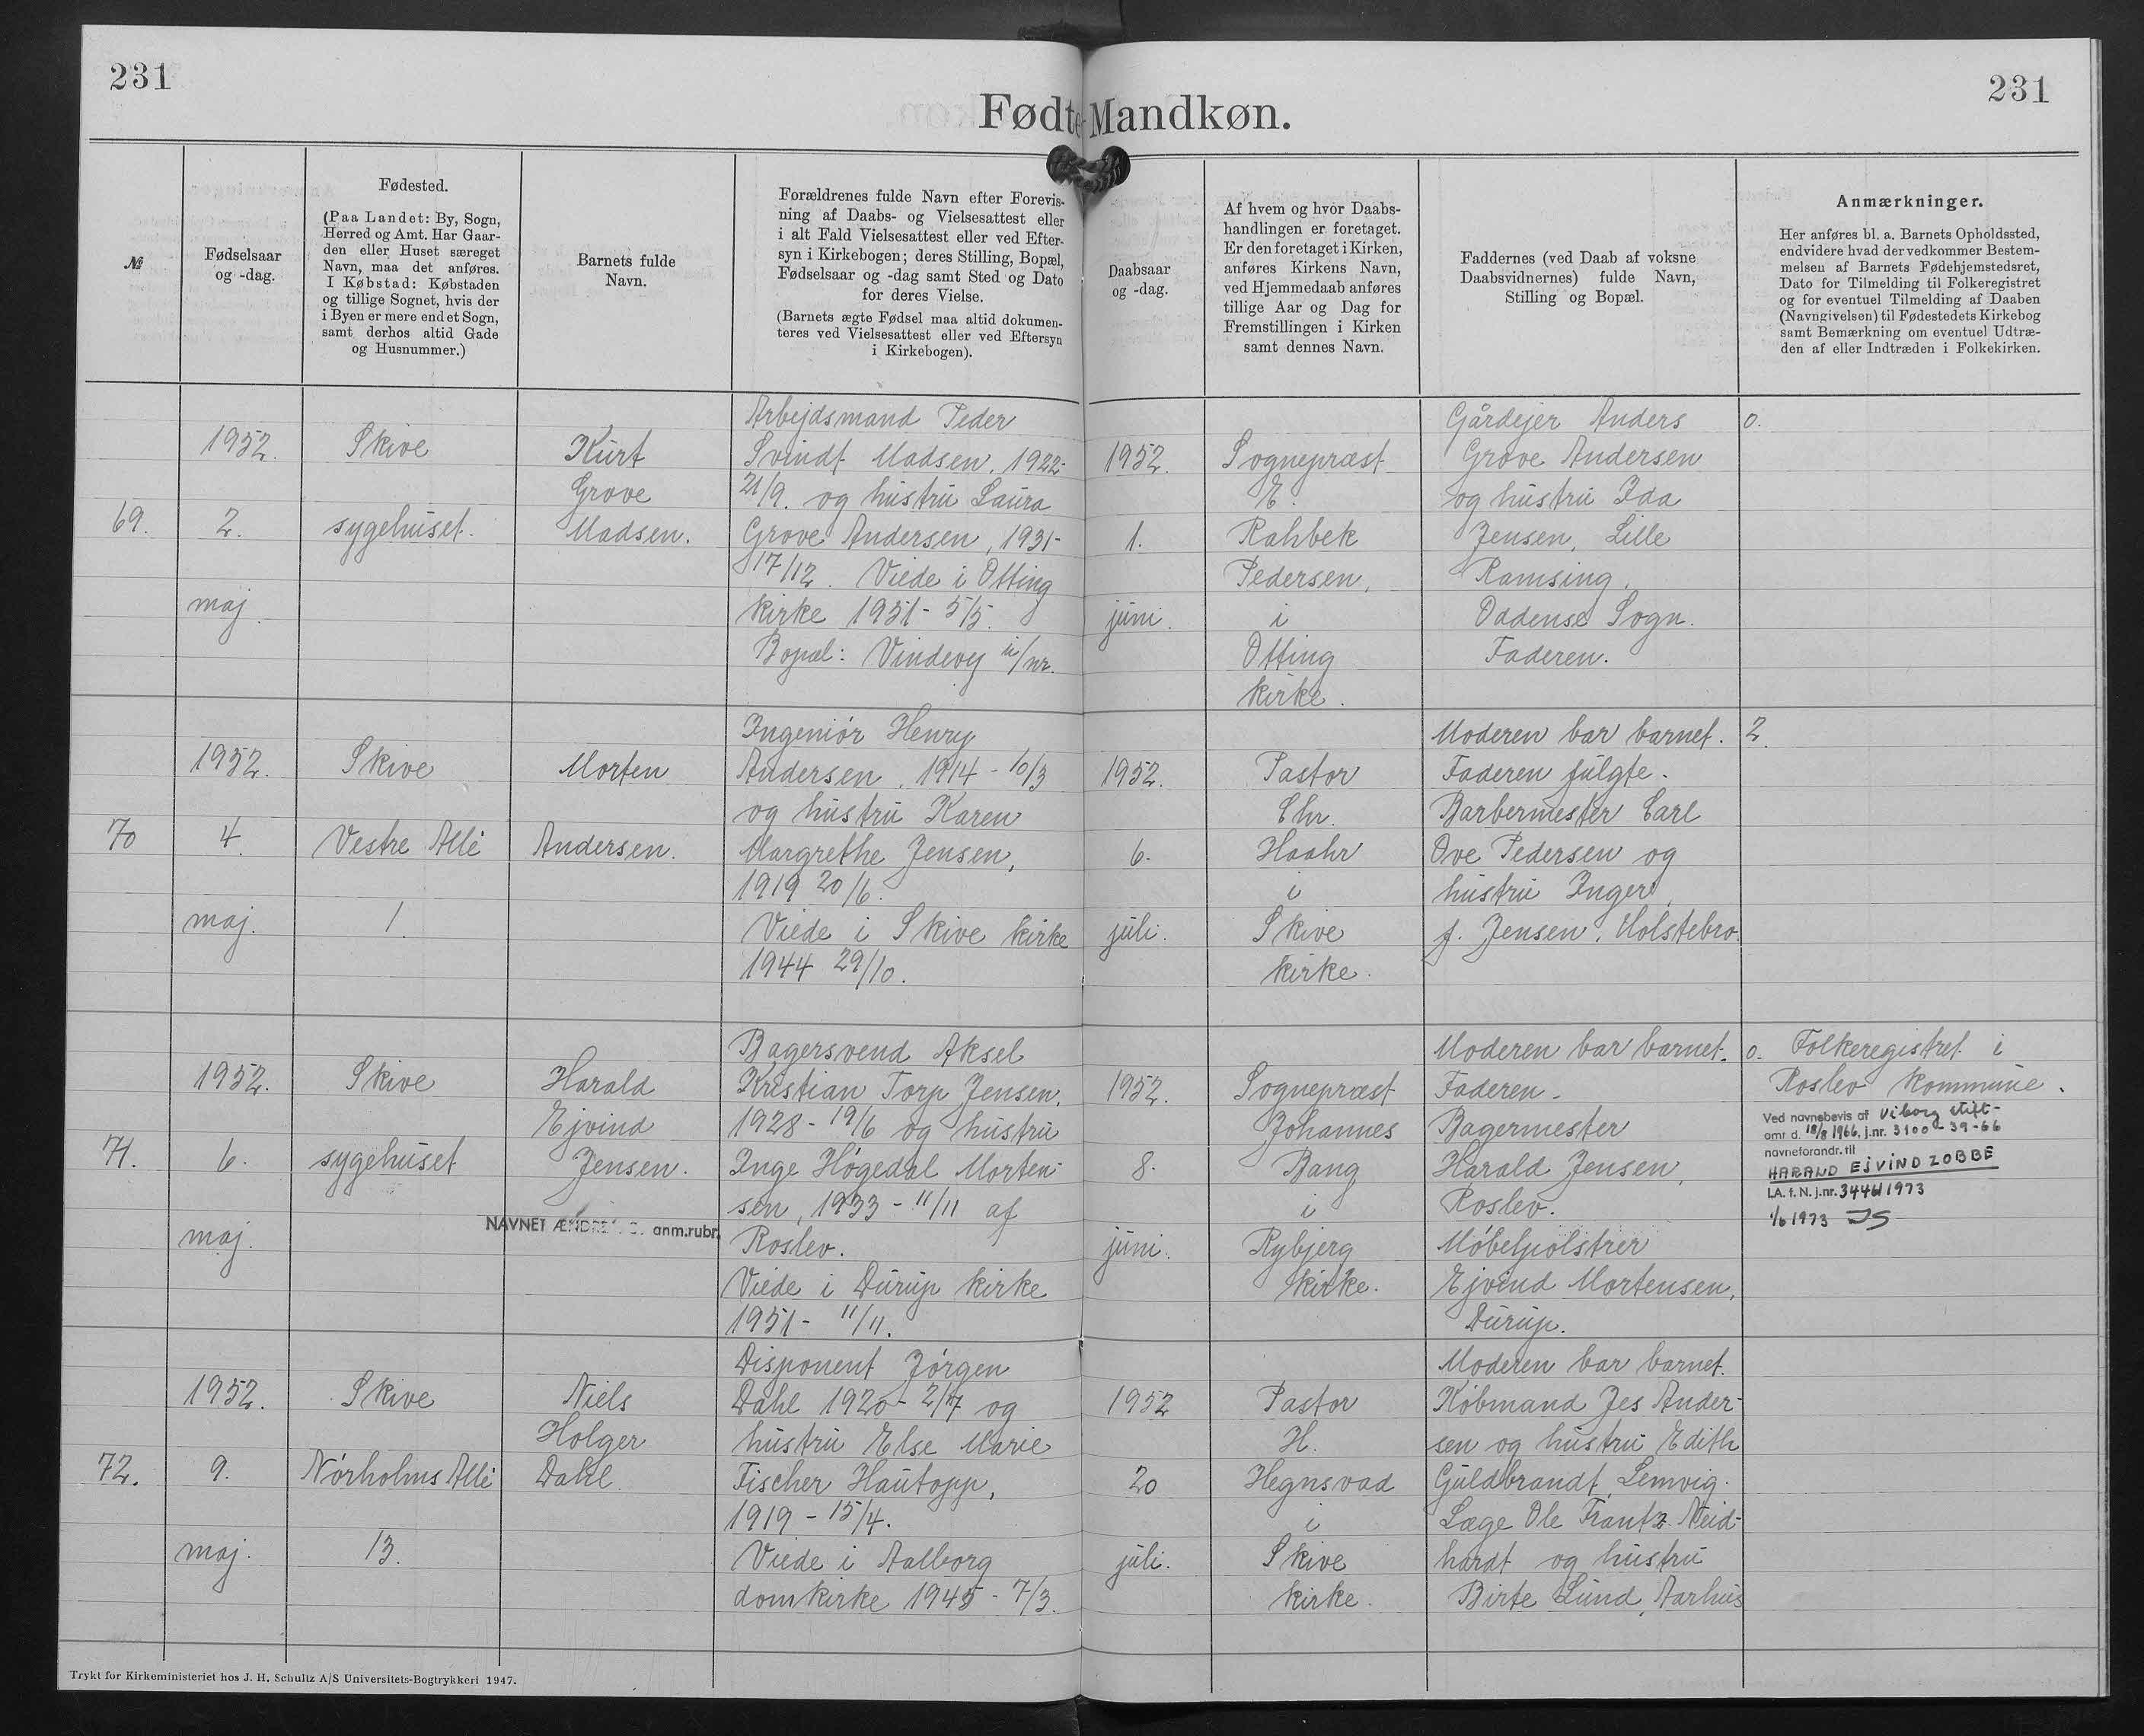 231
231
Fødte Mandkøn.
№
Fødselsaar
og -dag.
Fødested.
(Paa Landet: By, Sogn,
Herred og Amt. Har Gaar-
den eller Huset særeget
Navn, maa det anføres.
I Købstad: Købstaden
og tillige Sognet, hvis der
i Byen er mere end et Sogn,
samt derhos altid Gade
og Husnummer.)
Barnets fulde
Navn.
Forældrenes fulde Navn efter Forevis-
ning af Daabs- og Vielsesattest eller
i alt Fald Vielsesattest eller ved Efter-
syn i Kirkebogen; deres Stilling, Bopæl,
Fødselsaar og -dag samt Sted og Dato
for deres Vielse.
(Barnets ægte Fødsel maa altid dokumen-
teres ved Vielsesattest eller ved Eftersyn
i Kirkebogen).
Daabsaar
og -dag.
Af hvem og hvor Daabs-
handlingen er foretaget.
Er den foretaget i Kirken,
anføres Kirkens Navn,
ved Hjemmedaab anføres
tillige Aar og Dag for
Fremstillingen i Kirken
samt dennes Navn.
Faddernes (ved Daab af voksne
Daabsvidnernes) fulde Navn,
Stilling og Bopæl.
Anmærkninger.
Her anføres bl. a. Barnets Opholdssted,
endvidere hvad der vedkommer Bestem-
melsen af Barnets Fødehjemstedsret,
Dato for Tilmelding til Folkeregistret
og for eventuel Tilmelding af Daaben
(Navngivelsen) til Fødestedets Kirkebog
samt Bemærkning om eventuel Udtræ-
den af eller Indtræden i Folkekirken.
69.
1952.
2.
maj.
Skive
sygehuset.
Kurt
Grove
Madsen.
Arbejdsmand Peder
Svindt Madsen, 1922-
21/9. og hustru Laura
Grove Andersen, 1931-
17/12. Viede i Otting
kirke 1951 - 5/5.
Bopæl: Vindevej u/nr.
1952.
1.
juni.
Sognepræst
E.
Rahbek
Pedersen,
i
Otting
kirke.
Gårdejer Anders
Grove Andersen
og hustru Ida
Jensen, Lille
Ramsing,
Oddense Sogn.
Faderen.
0.
70
1952.
4.
maj.
Skive
Vestre Allé
1.
Morten
Andersen.
Ingeniør Henry
Andersen, 1914 - 10/3
og hustru Karen
Margrethe Jensen,
1919 20/6.
Viede i Skive kirke
1944 29/10.
1952.
6.
juli.
Pastor
Chr.
Haahr
i
Skive
kirke.
Moderen bar barnet.
Faderen fulgte.
Barbermester Carl
Ove Pedersen og
hustru Inger,
f. Jensen, Holstebro.
2.
71.
1952.
6.
maj.
Skive
sygehuset
Harald
Ejvind
Jensen.
NAVNET ÆNDRET anm.rubr.
Bagersvend Aksel
Kristian Torp Jensen,
1928 - 19/6 og hustru
Inge Høgedal Morten-
sen, 1933 - 11/11 af
Roslev.
Viede i Durup kirke
1951 - 11/11.
1952.
8.
juni.
Sognepræst
Johannes
Bang
i
Rybjerg
kirke.
Moderen bar barnet.
Faderen.
Bagermester
Harald Jensen,
Roslev.
Møbelpolstrer
Ejvind Mortensen,
Durup.
0. Folkeregistret i
Roslev kommune.
Ved navnebevis af Viborg stift-
amt d. 18/8 1966, j.nr. 3100 - 39-66
navneforandr. til
HARALD EJVIND ZOBBE
LA. f. N. j.nr. 3446/1973
1/6 1973 JS
72.
1952.
9.
maj.
Skive
Nørholms Allé
13.
Niels
Holger
Dahl.
Disponent Jørgen
Dahl 1920 - 2/7 og
hustru Else Marie
Fischer Hautopp,
1919 - 15/4.
Viede i Aalborg
domkirke 1945 - 7/3.
1952
20
juli.
Pastor
H.
Hegnsvad
i
Skive
kirke.
Moderen bar barnet.
Købmand Jes Ander-
sen og hustru Edith
Guldbrandt, Lemvig.
Læge Ole Frantz Neid-
hardt og hustru
Birte Lund, Aarhus
Trykt for Kirkeministeriet hos J. H. Schultz A/S Universitets-Bogtrykkeri 1947.